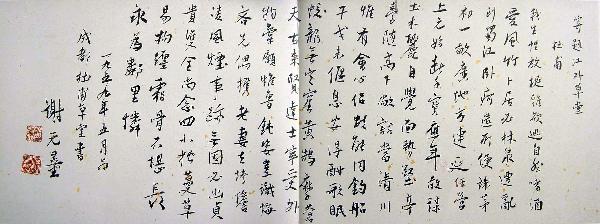 寄題江外草堂
杜甫
我生性放誕雅欲逃自然嗜酒
愛風竹卜居必林泉遭亂
到蜀江臥疴遣所便誅茅
初一畝廣地方連延經營
上元始斷手寶應年敢謀
土木麗自覺面勢堅亭
臺隨高下敞豁當清川
惟有會心侶數能同釣船
干戈未偃息安得酣歌眠
蛟龍無定窟黃鵠摩蒼
天古來賢達士寧受外
物牽顧惟魯鈍姿豈識悔
吝先偶攜老妻去慘澹
凌風煙事跡無固必幽貞
愧雙全尚念四小松蔓草
易拘纏霜骨不堪長
永為鄰里憐
一九五九年五月為
成都杜甫草堂書
謝无量